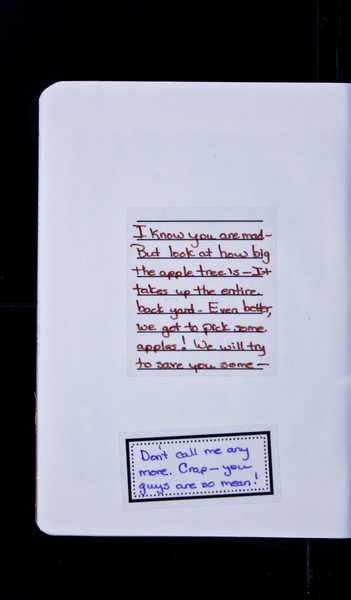 I know you are mad-
But look at how big
the apple tree is - It
takes up the entire
back yard - Even better,
we get to pick some
apples! We will try
to save you some -
Don't call me any
more. Crap - you
guys are so mean!